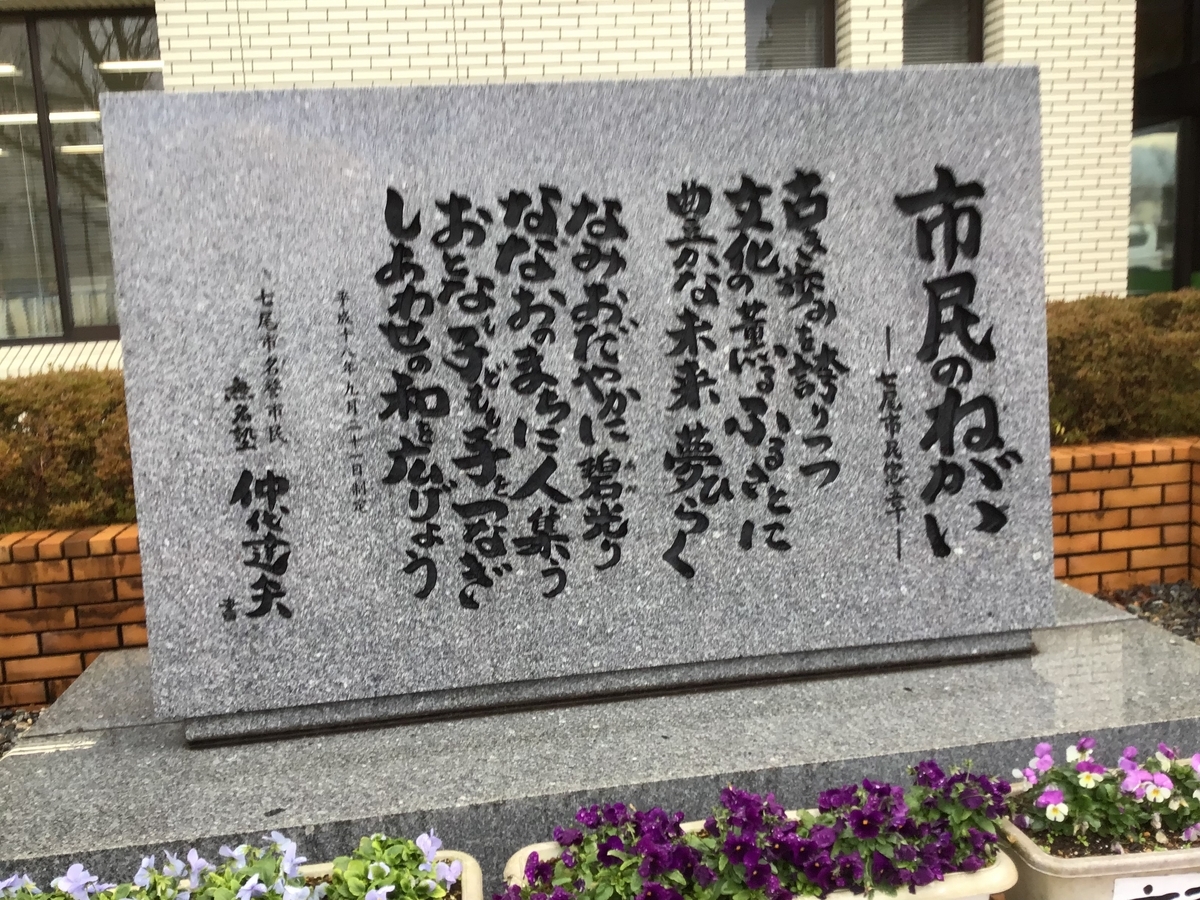 市民のねがい
―七尾市民憲章―
古き歩みを誇りつつ
文化の薫るふるさとに
豊かな未来夢ひらく
なみおだやかに碧光り
ななおのまちに人集う
おとなも子どもも手をつなぎ
しあわせの和を広げよう
平成十八年九月二十一日制定
七尾市名誉市民
無名塾 仲代達矢
書